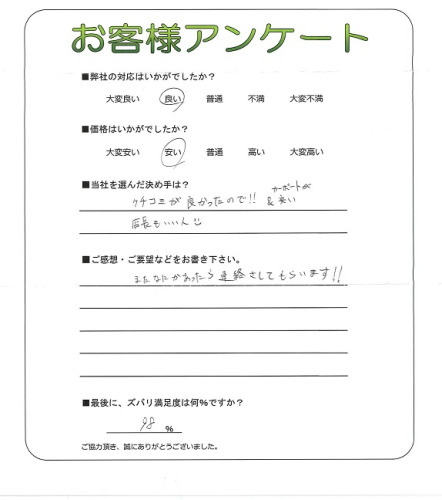 お客様アンケート
■弊社の対応はいかがでしたか？
大変良い 良い 普通 不満 大変不満
■価格はいかがでしたか？
大変安い 安い 普通 高い 大変高い
■当社を選んだ決め手は？
クチコミが良かったので!! カーポートが
&安い
店長もいい人
■ご感想・ご要望などをお書き下さい。
またなにかあったら連絡さしてもらいます!!
■最後に、ズバリ満足度は何%ですか？
98 %
ご協力頂き、誠にありがとうございました。